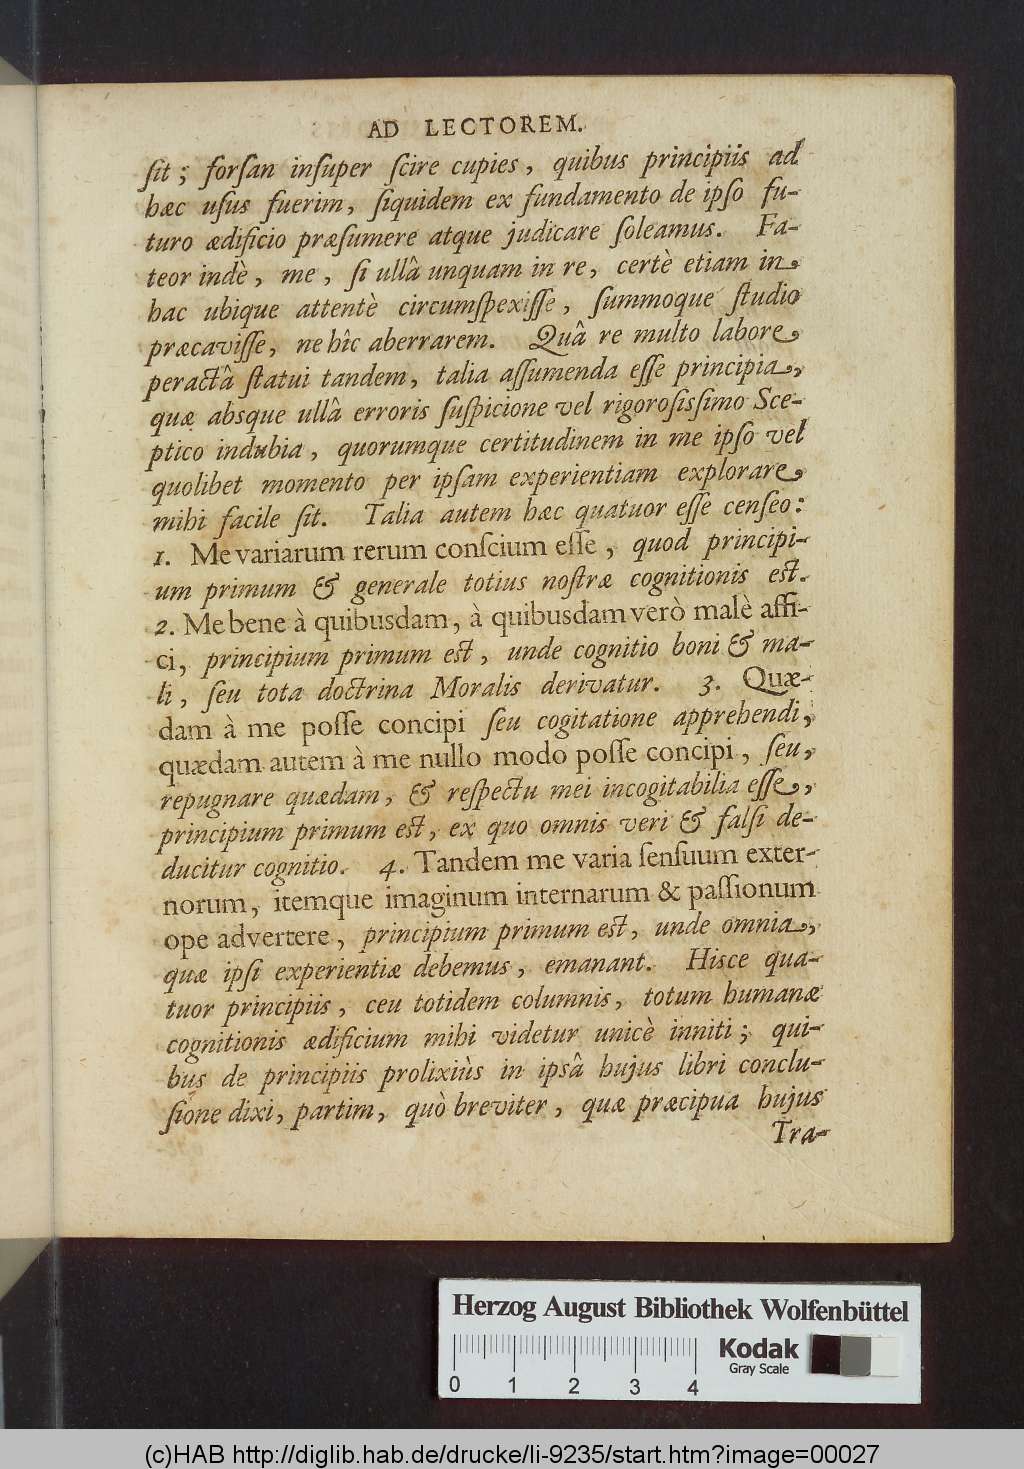 AD LECTOREM.
ſit; forſan inſuper ſcire cupies, quibus principiis ad
hæc uſus fuerim, ſiquidem ex fundamento de ipſo fu-
turo ædificio præſumere atque judicare ſoleamus. Fa-
teor indè, me, ſi ullâ unquam in re, certè etiam in
hac ubique attentè circumſpexiſſe, ſummoque ſtudio
præcaviſſe, ne hîc aberrarem. Quâ re multo labore
peractâ ſtatui tandem, talia aſſumenda eſſe principia,
quæ absque ullâ erroris ſuſpicione vel rigoroſisſimo Sce-
ptico indubia, quorumque certitudinem in me ipſo vel
quolibet momento per ipſam experientiam explorare
mihi facile ſit. Talia autem hæc quatuor eſſe cenſeo:
1. Me variarum rerum conſcium eſſe, quod principi-
um primum & generale totius noſtræ cognitionis eſt.
2. Me bene à quibusdam, à quibusdam verò malè affi-
ci, principium primum eſt, unde cognitio boni & ma-
li, ſeu tota doctrina Moralis derivatur. 3. Quæ-
dam à me poſſe concipi ſeu cogitatione apprehendi,
quædam autem à me nullo modo poſſe concipi, ſeu,
repugnare quædam, & reſpectu mei incogitabilia eſſe,
principium primum eſt, ex quo omnis veri & falſi de-
ducitur cognitio. 4. Tandem me varia ſenſuum exter-
norum, itemque imaginum internarum & paſſionum
ope advertere, principium primum eſt, unde omnia,
quæ ipſi experientiæ debemus, emanant. Hisce qua-
tuor principiis, ceu totidem columnis, totum humanæ
cognitionis ædificium mihi videtur unicè inniti; qui-
bus de principiis prolixiùs in ipsâ hujus libri conclu-
ſione dixi, partim, quò breviter, quæ præcipua hujus
Tra-
Herzog August Bibliothek Wolfenbüttel
Kodak
Gray Scale
0 1 2 3 4
(c)HAB http://diglib.hab.de/drucke/li-9235/start.htm?image=00027